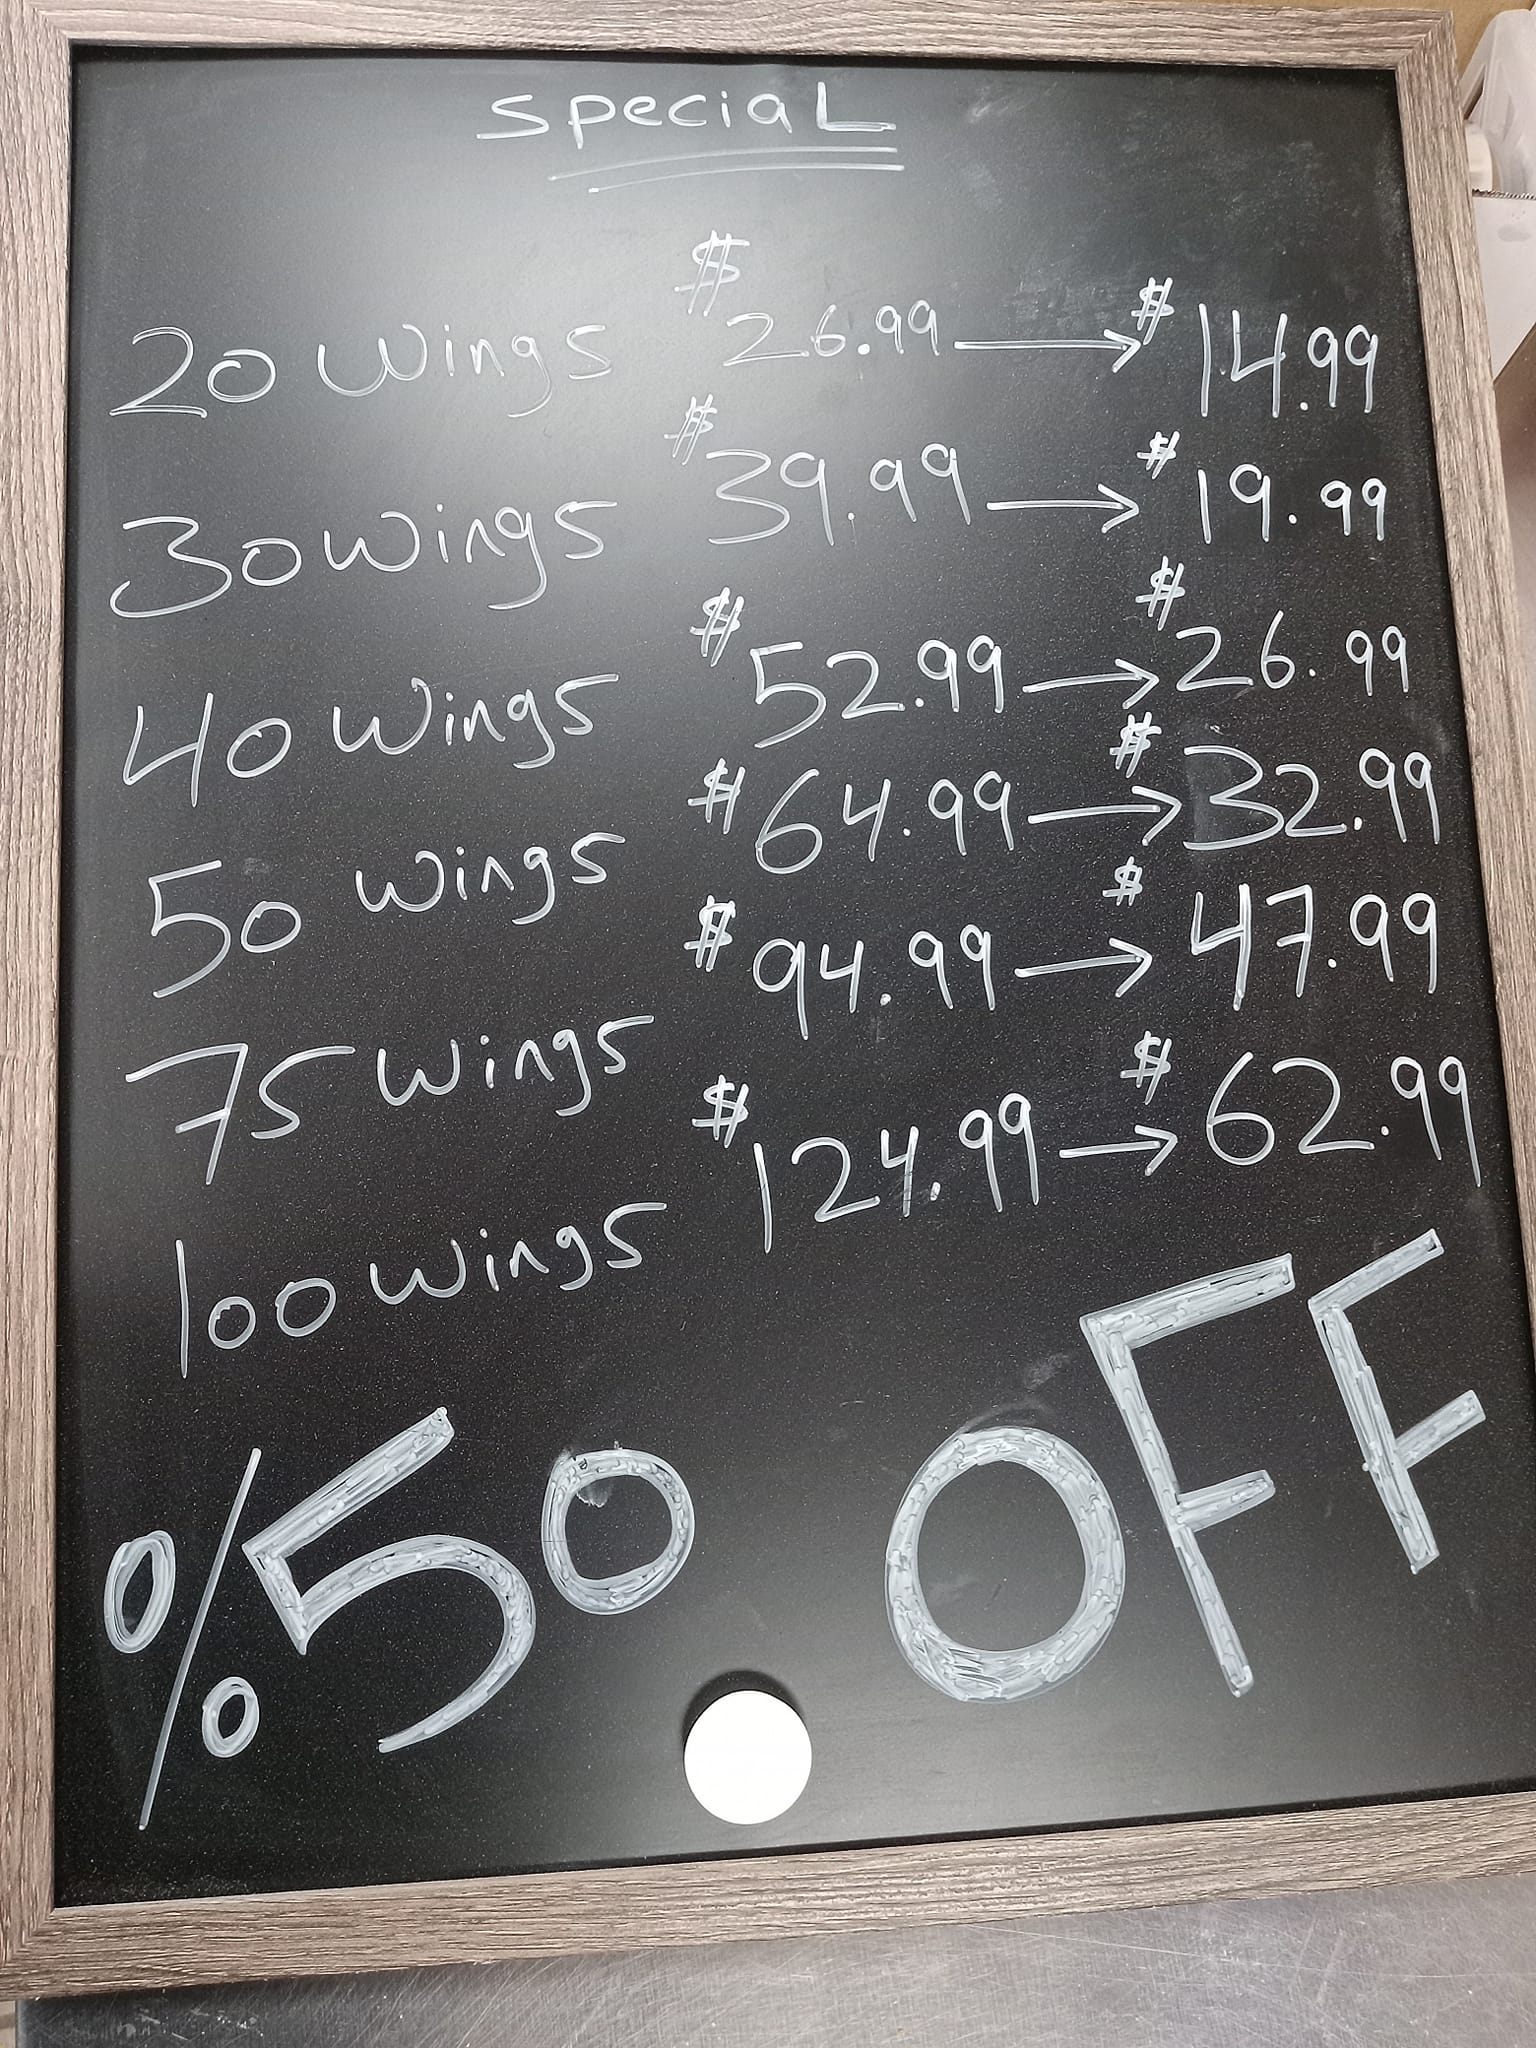 special
20 wings $26.99 → $14.99
30 wings $39.99 → $19.99
40 wings $52.99 → $26.99
50 wings $64.99 → $32.99
75 wings $94.99 → $47.99
100 wings $124.99 → $62.99
%50 OFF